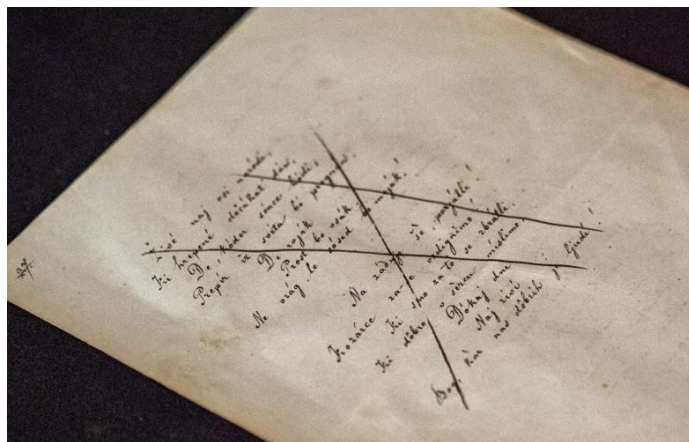 Živé naj vsi naródi,
Ki hrepené dočakat' dan,
De koder sonce hodi,
Prepir iz sveta bo pregnan,
De rojak
Prost bo vsak,
Ne vrag, le sosed bo mejak!
Na zadnje še prijatli!
Kozarce za-se vzdignimo!
Ki smo za-to se zbratli,
Ki dobro v sercu mislimo;
Dókaj dni
Naj živí
Bog, kar nas dobrih je ljudi!